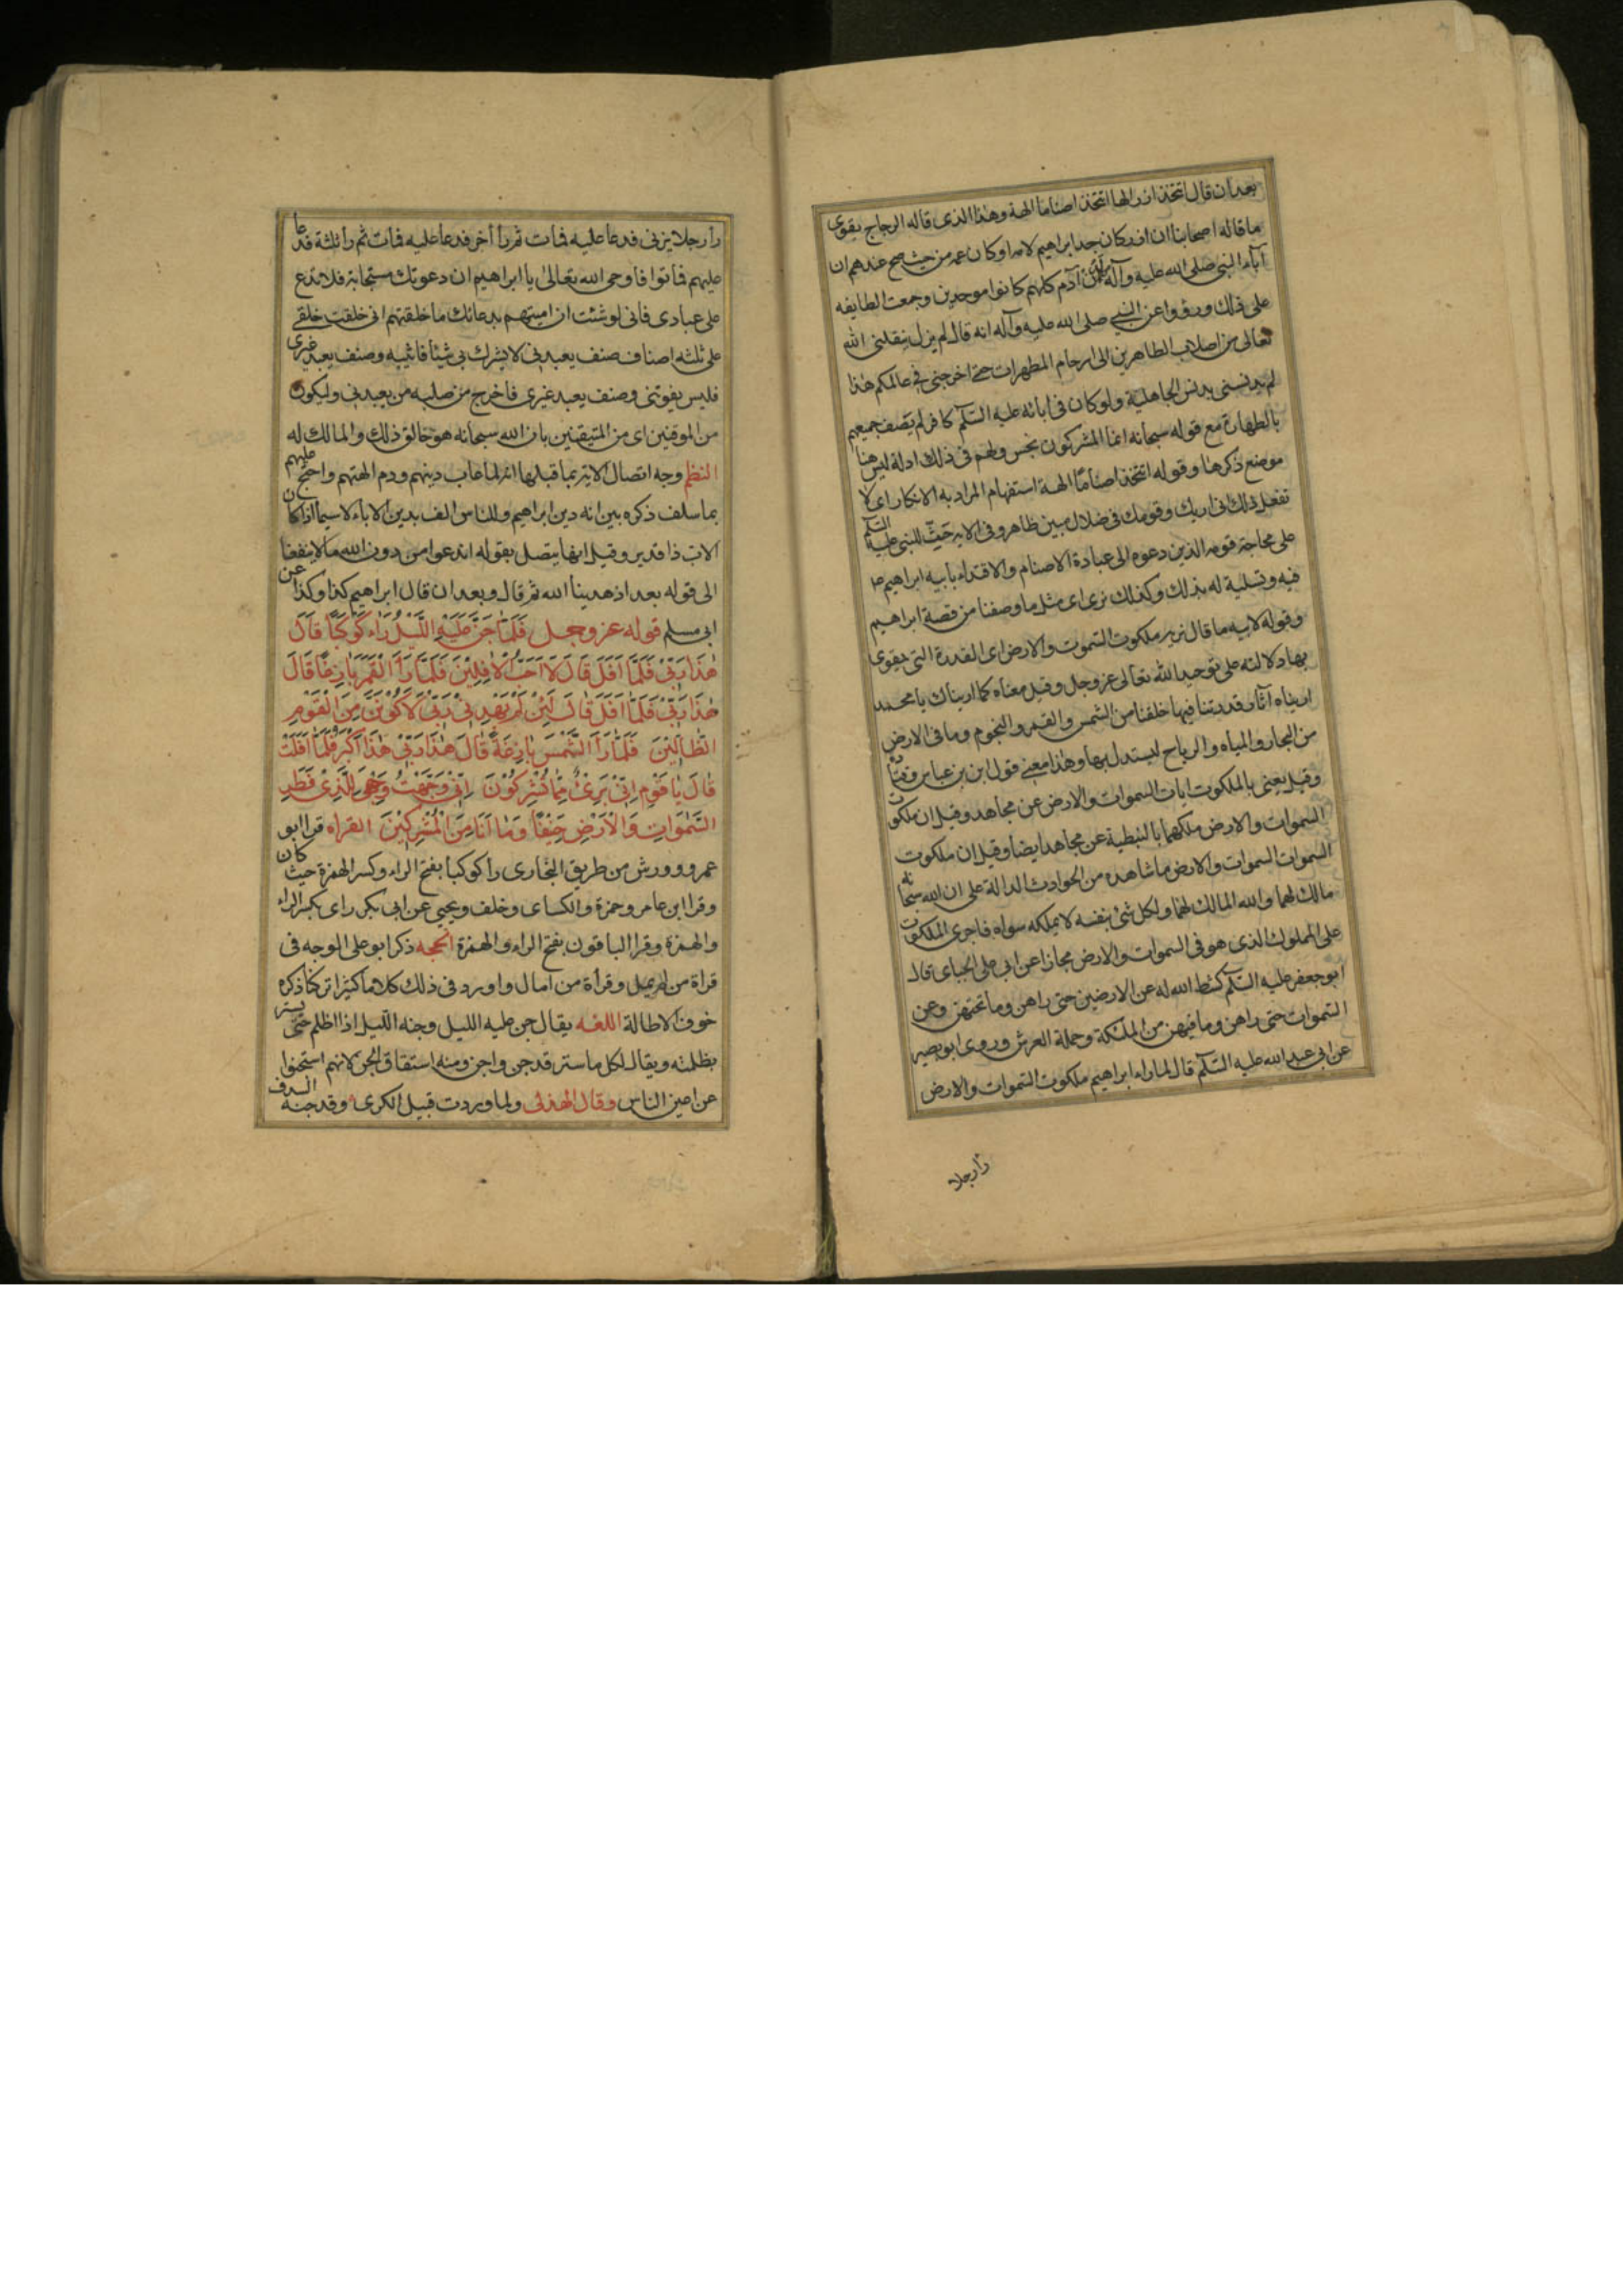 بعد ان قال اتتخذ ازر الها اتتخذ اصناما الهة وهذا الذى قاله الزجاج يقوى
ما قاله اصحابنا ان ازر كان جد ابراهيم لامه او كان عمه من حيث صح عندهم ان
آباء النبى صلى الله عليه وآله الى آدم كلهم كانوا موحدين وجمعت الطايفه
على ذلك ورووا عن النبى صلى الله عليه وآله انه قال لم يزل ينقلنى الله
تعالى من اصلاب الطاهرين الى ارحام المطهرات حتى اخرجنى فى عالمكم هذا
لم يدنسنى بدنس الجاهلية ولو كان فى ابائه عليه السلم كافر لم يصف جميعهم
بالطهارة مع قوله سبحانه انما المشركون نجس ولهم فى ذلك ادلة ليس هنا
موضع ذكرها وقوله اتتخذ اصناما الهة استفهام المراد به الانكار اى لا
تفعل ذلك انى اريك وقومك فى ضلال مبين ظاهر وفى الاية حث للنبى عليه السلم
على محاجة قومه الذين دعوه الى عبادة الاصنام والاقتداء بابيه ابراهيم
فيه وتسلية له بذلك وكذلك نرى اى مثل ما وصفنا من قصة ابراهيم
وقوله لابيه ما قال نريه ملكوت السموت والارض اى القدرة التى يقوى
بها دلالته على توحيد الله تعالى عز وجل وقيل معناه كما اريناك يا محمد
اريناه آثار قدرتنا فيها خلقنا من الشمس والقمر والنجوم وما فى الارض
من البحار والمياه والرياح ليستدل بها وهذا معنى قول ابن عباس وقتادة
وقيل يعنى بالملكوت ايات السموات والارض عن مجاهد وقيل ان ملكوت
السموات والارض ملكهما بالنبطية عن مجاهد ايضا وقيل ان ملكوت
السموات السموات والارض ما شاهده من الحوادث الدالة على ان الله سبحانه
مالك لهما والله المالك لهما ولكل شئ بنفسه لا يملكه سواه فاجرى الملكوت
على المملوك الذى هو فى السموات والارض مجازا عن ابى على الجباى قال
ابو جعفر عليه السلم كشط الله له عن الارضين حتى راهن وما تحتهن وعن
السموات حتى راهن وما فيهن من الملئكة وحملة العرش وروى ابو بصير
عن ابى عبد الله عليه السلم قال لما راى ابراهيم ملكوت السموات والارض
رأ رجلا
رأ رجلا يزنى فدعا عليه فمات ثم رأ آخر فدعا عليه فمات ثم رأ ثلثة فدعا
عليهم فماتوا فاوحى الله تعالى يا ابراهيم ان دعوتك مستجابة فلا تدع
على عبادى فانى لو شئت ان اميتهم بدعائك ما خلقتهم انى خلقت خلقى
على ثلثه اصناف صنف يعبدنى لا يشرك بى شيئا فاثيبه وصنف يعبد غيرى
فليس يفوتنى وصنف يعبد غيرى فاخرج من صلبه من يعبدنى وليكون
من الموقنين اى من المتيقنين بان الله سبحانه هو خالق ذلك والمالك له
النظم وجه اتصال الاية بما قبلها انه لما عاب دينهم وذم الهتهم واحتج عليهم
بما سلف ذكره بين انه دين ابراهيم وللناس الف بدين الاباء لا سيما اذا كان
الاب ذا قدر وقيل انها يتصل بقوله اندعوا من دون الله ما لا ينفعنا
الى قوله بعد اذ هدينا الله ثم قال وبعد ان قال ابراهيم كذا وكذا عن
ابى مسلم قوله عز وجل فَلَمَّا جَنَّ عَلَيْهِ اللَّيْلُ رَاٰ كَوْكَبًا قَالَ
هٰذَا رَبِّىْ فَلَمَّا اَفَلَ قَالَ لَا اُحِبُّ الْاٰفِلِيْنَ فَلَمَّا رَاَ الْقَمَرَ بَازِغًا قَالَ
هٰذَا رَبِّىْ فَلَمَّا اَفَلَ قَالَ لَئِنْ لَمْ يَهْدِنِىْ رَبِّىْ لَاَكُوْنَنَّ مِنَ الْقَوْمِ
الضَّالِّيْنَ فَلَمَّا رَاَ الشَّمْسَ بَازِغَةً قَالَ هٰذَا رَبِّىْ هٰذَا اَكْبَرُ فَلَمَّا اَفَلَتْ
قَالَ يَا قَوْمِ اِنِّىْ بَرِىْءٌ مِمَّا تُشْرِكُوْنَ اِنِّىْ وَجَّهْتُ وَجْهِىَ لِلَّذِىْ فَطَرَ
السَّمٰوَاتِ وَالْاَرْضَ حَنِيْفًا وَمَا اَنَا مِنَ الْمُشْرِكِيْنَ القراه قرا ابو
عمرو وورش من طريق البخارى رأ كوكبا بفتح الراء وكسر الهمزة حيث كان
وقرا ابن عامر وحمزة والكساى وخلف ويحيى عن ابى بكر راى بكسر الراء
والهمزة وقرا الباقون بفتح الراء والهمزة الحجه ذكر ابو على الوجه فى
قراة من لم يمل وقرأة من امال واورد فى ذلك كلاما كثيرا تركنا ذكره
خوف الاطالة اللغه يقال جن عليه الليل وجنه الليل اذا اظلم حتى يستر
بظلمته ويقال لكل ما ستر قد جن واجن ومنه اشتقاق الجن لانهم استجنوا
عن اعين الناس وقال الهذلى ولما وردت قبيل الكرى وقد جنه السدف